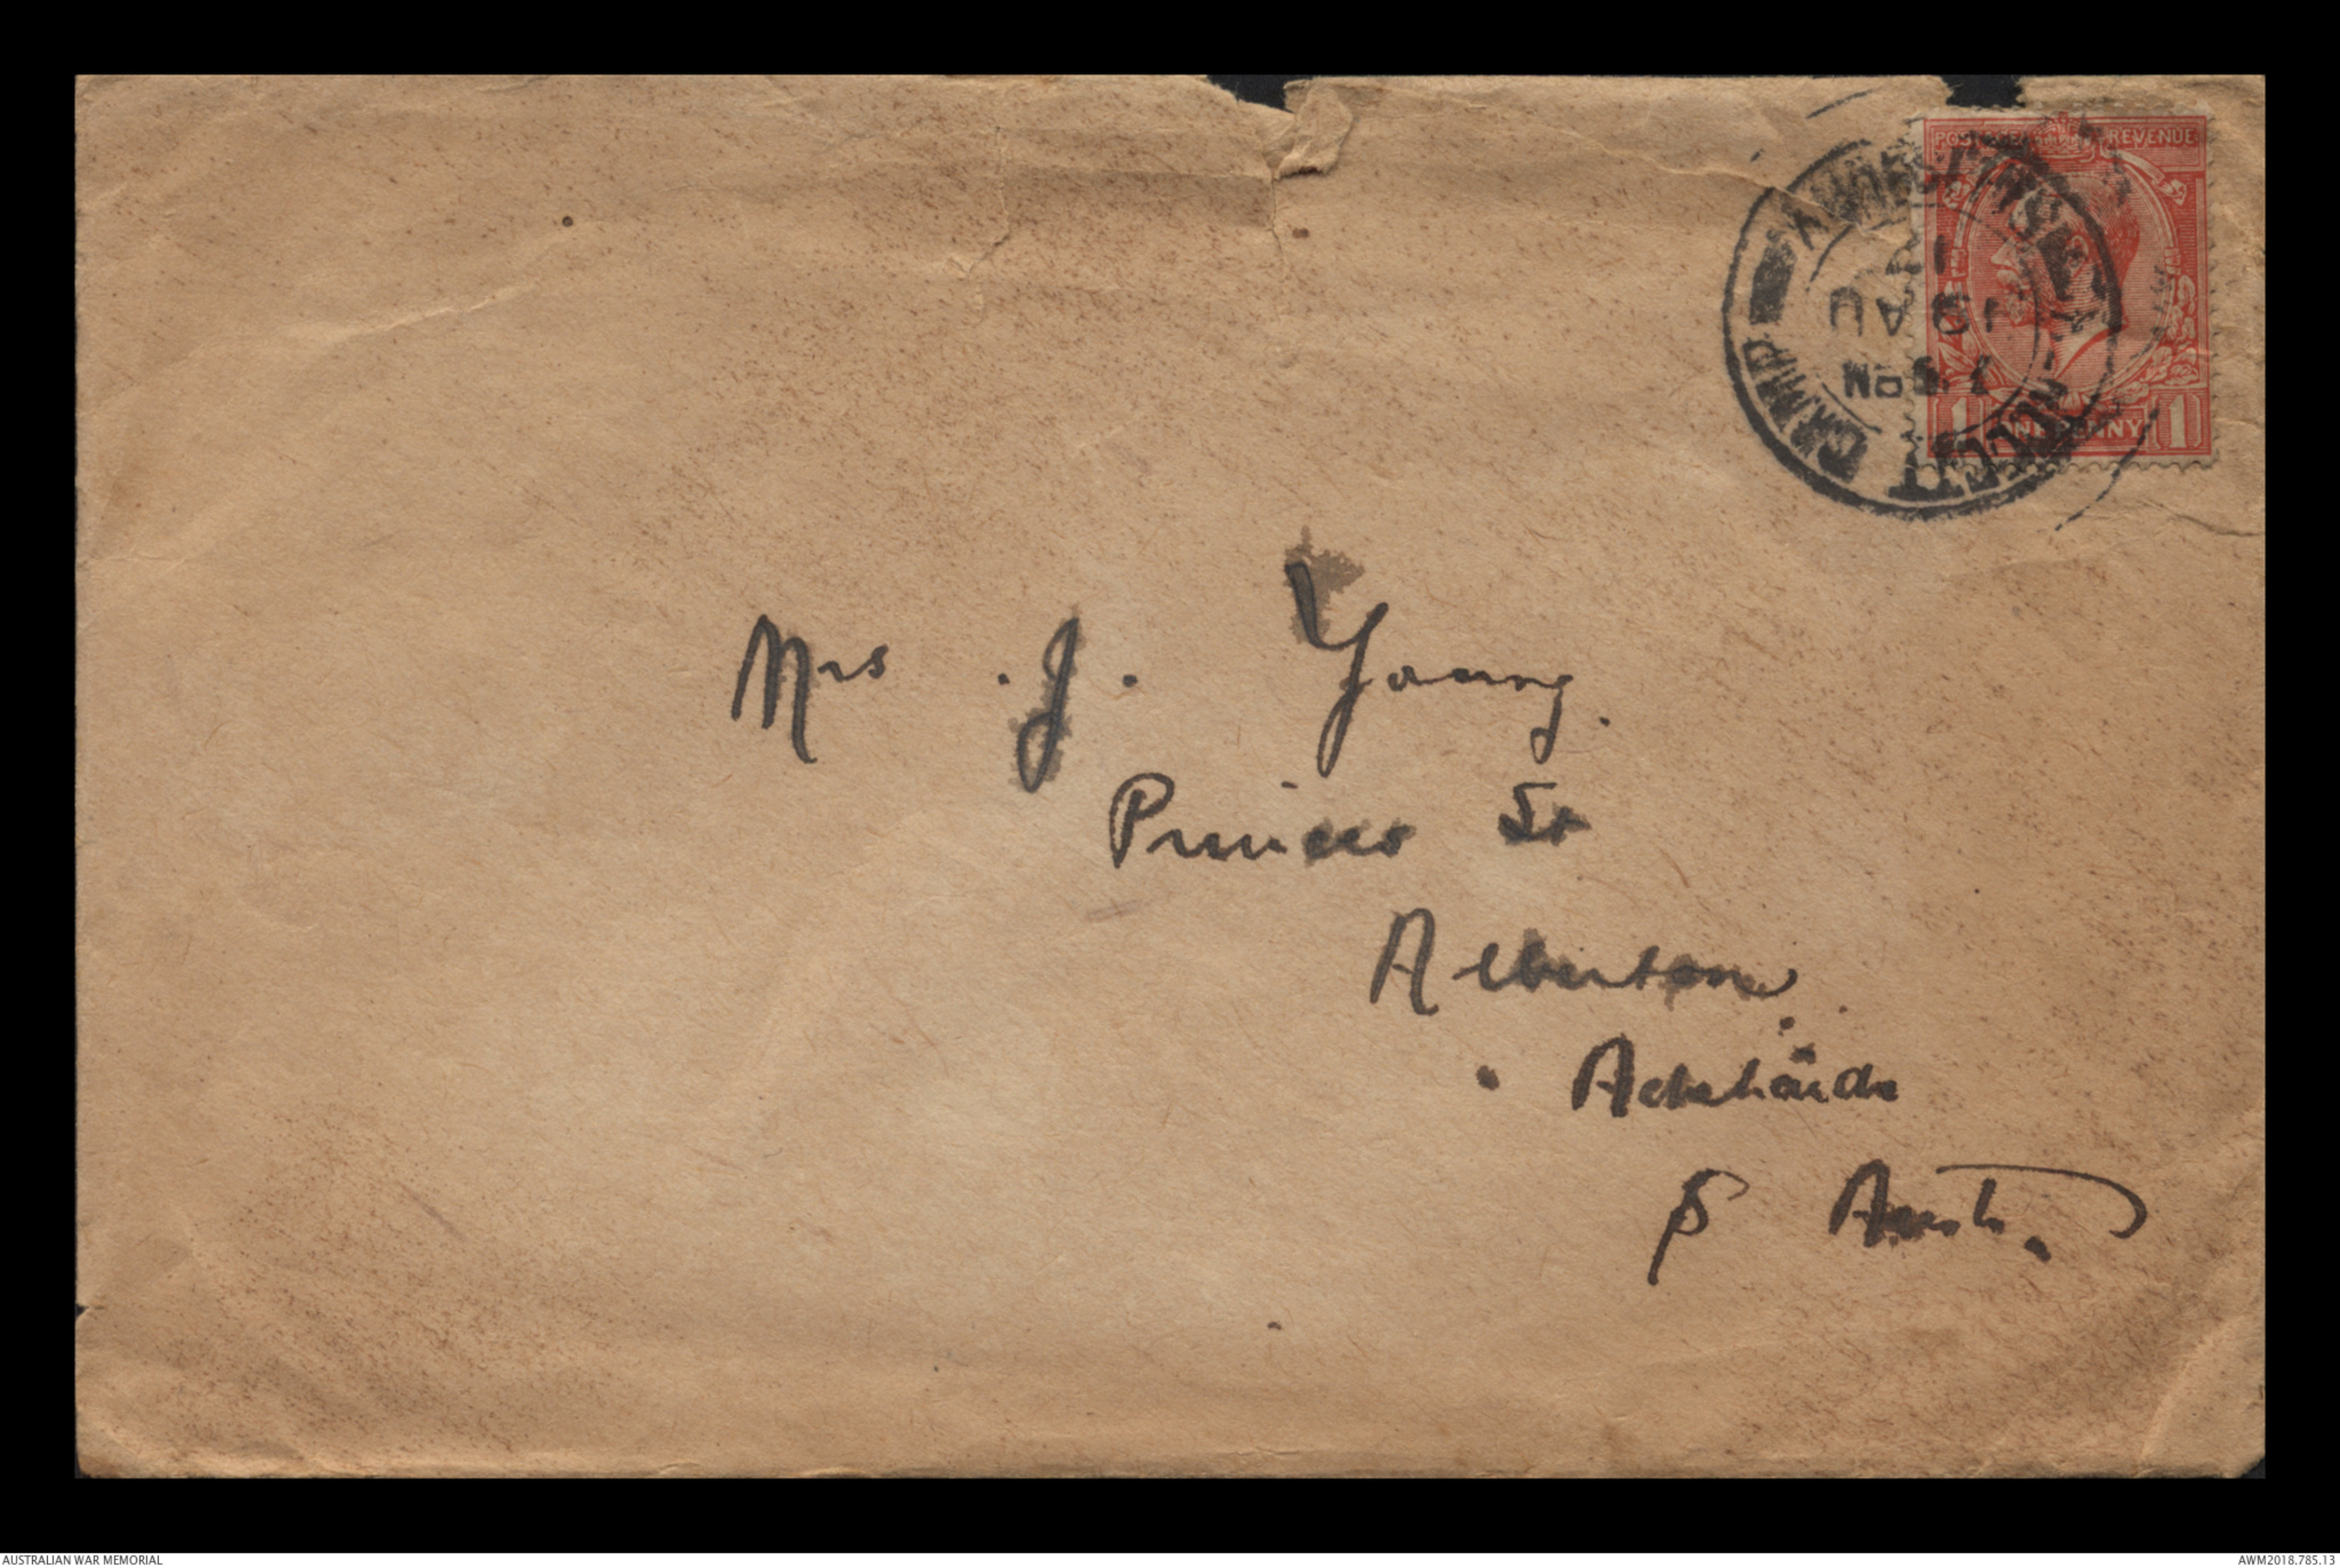 POSTAGE REVENUE
1 ONE PENNY 1
CAMP
19 AU
Mrs . J . Young.
Princes St
Alberton
Adelaide
S Aust.
AUSTRALIAN WAR MEMORIAL
AWM2018.785.13